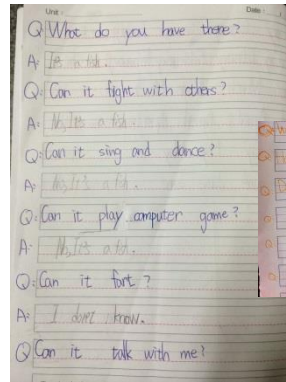 Unit: Date:
Q: What do you have there?
A: It's a fish.
Q: Can it fight with others?
A: No, It's a fish.
Q: Can it sing and dance?
A: No, It's a fish.
Q: Can it play computer game?
A: No, It's a fish.
Q: Can it fart?
A: I don't know.
Q: Can it talk with me?